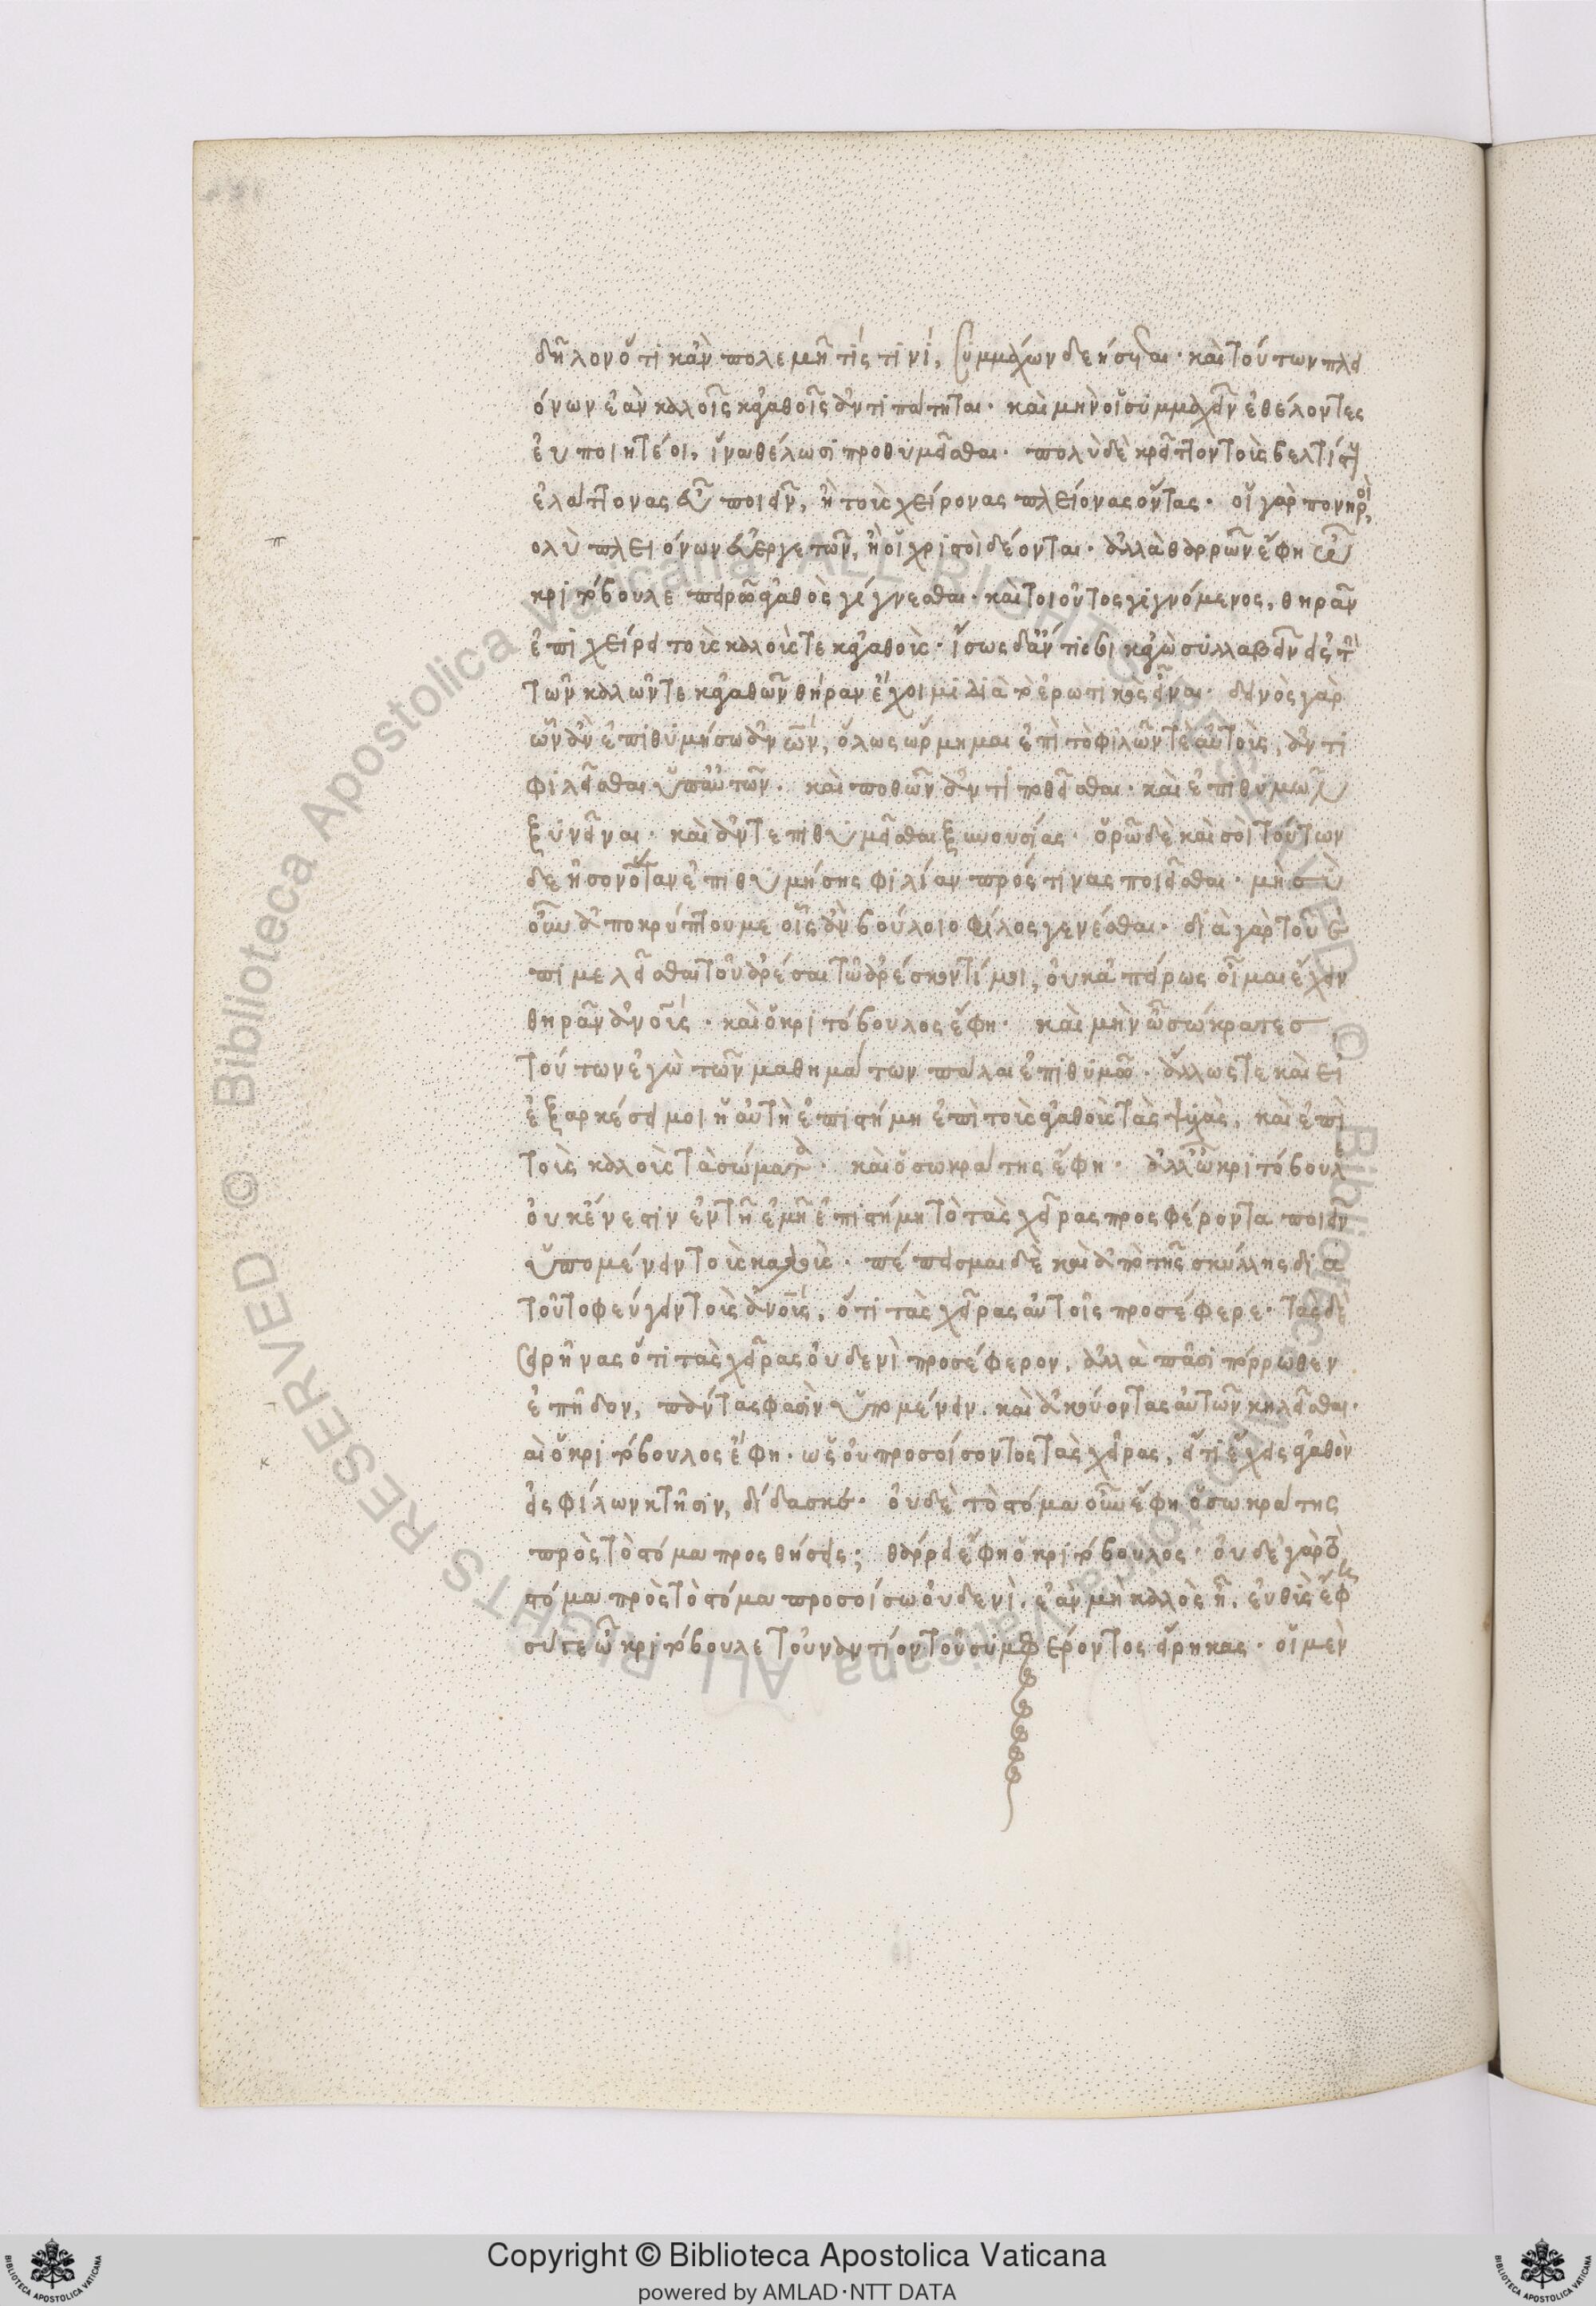 δῆλον ὅτι κἂν πολεμῆ τίς τινὶ, συμμάχων δεήσεται· καὶ τούτων πλει
όνων ἐὰν καλοῖς κἀγαθοῖς ἀντιτάττηται· καὶ μὴν οἱ συμμαχεῖν ἐθέλοντες
εὐποιητέοι, ἵνα θέλωσι προθυμεῖσθαι· πολὺ δὲ κρεῖττον τοὺς βελτίστους
ἐλάττονας εὖ ποιεῖν, ἢ τοὺς χείρονας πλείονας ὄντας· οἱ γὰρ πονηροὶ
π
ολὺ πλειόνων εὐεργετῶν, ἢ οἱ χρηστοὶ δέονται· ἀλλὰ θαρρῶν ἔφη ὦ
κριτόβουλε πειρῶ ἀγαθὸς γίγνεσθαι· καὶ τοιοῦτος γιγνόμενος, θηρᾶν
ἐπιχείρει τοὺς καλούς τε κἀγαθούς· ἴσως δ' ἄν τί σοι κἀγὼ συλλαβεῖν εἰς τὴν
τῶν καλῶν τε κἀγαθῶν θήραν ἔχοιμι διὰ τὸ ἐρωτικὸς εἶναι· δεινὸς γὰρ
ὧν ἂν ἐπιθυμήσω ἀνων, ὅλως ὥρμημαι ἐπὶ τὸ φιλῶν τε αὐτοὺς, ἀντι
φιλεῖσθαι ὑπ' αὐτῶν· καὶ ποθῶν ἀντιποθεῖσθαι· καὶ ἐπιθυμῶν
ξυνεῖναι· καὶ ἀντεπιθυμεῖσθαι ξυνουσίας· ὁρῶ δὲ καὶ σοὶ τούτων
δεῆσον ὅταν ἐπιθυμήσης φιλίαν πρός τινας ποιεῖσθαι· μὴ σὺ
οὖν ἀποκρύπτου με οἷς ἂν βούλοιο φίλος γενέσθαι· διὰ γὰρ τοῦ ἐ
πιμελεῖσθαι τοῦ ἀρέσαι τῶ ἀρέσκοντί μοι, οὐκ ἀπείρως οἶμαι ἔχειν
θηρᾶν ἀνους· καὶ ὁ κριτόβουλος ἔφη· καὶ μὴν ὦ σώκρατες
τούτων ἐγὼ τῶν μαθημάτων πάλαι ἐπιθυμῶ· ἄλλως τε καὶ εἰ
ἐξαρκέσει μοι ἡ αὐτὴ ἐπιστήμη ἐπὶ τοὺς ἀγαθοὺς τὰς ψχὰς, καὶ ἐπὶ
τοὺς καλοὺς τὰ σώματα· καὶ ὁ σωκράτης ἔφη· ἀλλ' ὦ κριτόβουλ
οὐκ ἔνεστιν ἐν τῆ ἐμῆ ἐπιστήμη τὸ τὰς χεῖρας προσφέροντα ποιεῖν
ὑπομένειν τοὺς καλούς· πέπεισμαι δὲ καὶ ἀπὸ τῆς σκύλλης διὰ
τοῦτο φεύγειν τοὺς ἀνους, ὅτι τὰς χεῖρας αὐτοῖς προσέφερε· τὰς δὲ
σειρῆνας ὅτι τὰς χεῖρας οὐδενὶ προσέφερον, ἀλλὰ πᾶσι πόρρωθεν
ἐπῆδον, πάντας φασὶν ὑπομένειν, καὶ ἀκούοντας αὐτῶν κηλεῖσθαι·
κ
αὶ ὁ κριτόβουλος ἔφη· ὡς οὐ προσοίσοντος τὰς χεῖρας, εἴ τι ἔχεις ἀγαθὸν
εἰς φίλων κτῆσιν, δίδασκε· οὐδὲ τὸ στόμα οὖν ἔφη ὁ σωκράτης
πρὸς τὸ στόμα προσθήσεις; θάρρει ἔφη ὁ κριτόβουλος· οὐδὲ γὰρ τὸ
στόμα πρὸς τὸ στόμα προσοίσω οὐδενὶ, ἐὰν μὴ καλὸς ἦ, εὐθὺς ἔφη
σύ γε ὦ κριτόβουλε τοὐναντίον τοῦ συμφέροντος εἴρηκας· οἱ μὲν
Copyright © Biblioteca Apostolica Vaticana
powered by AMLAD·NTT DATA